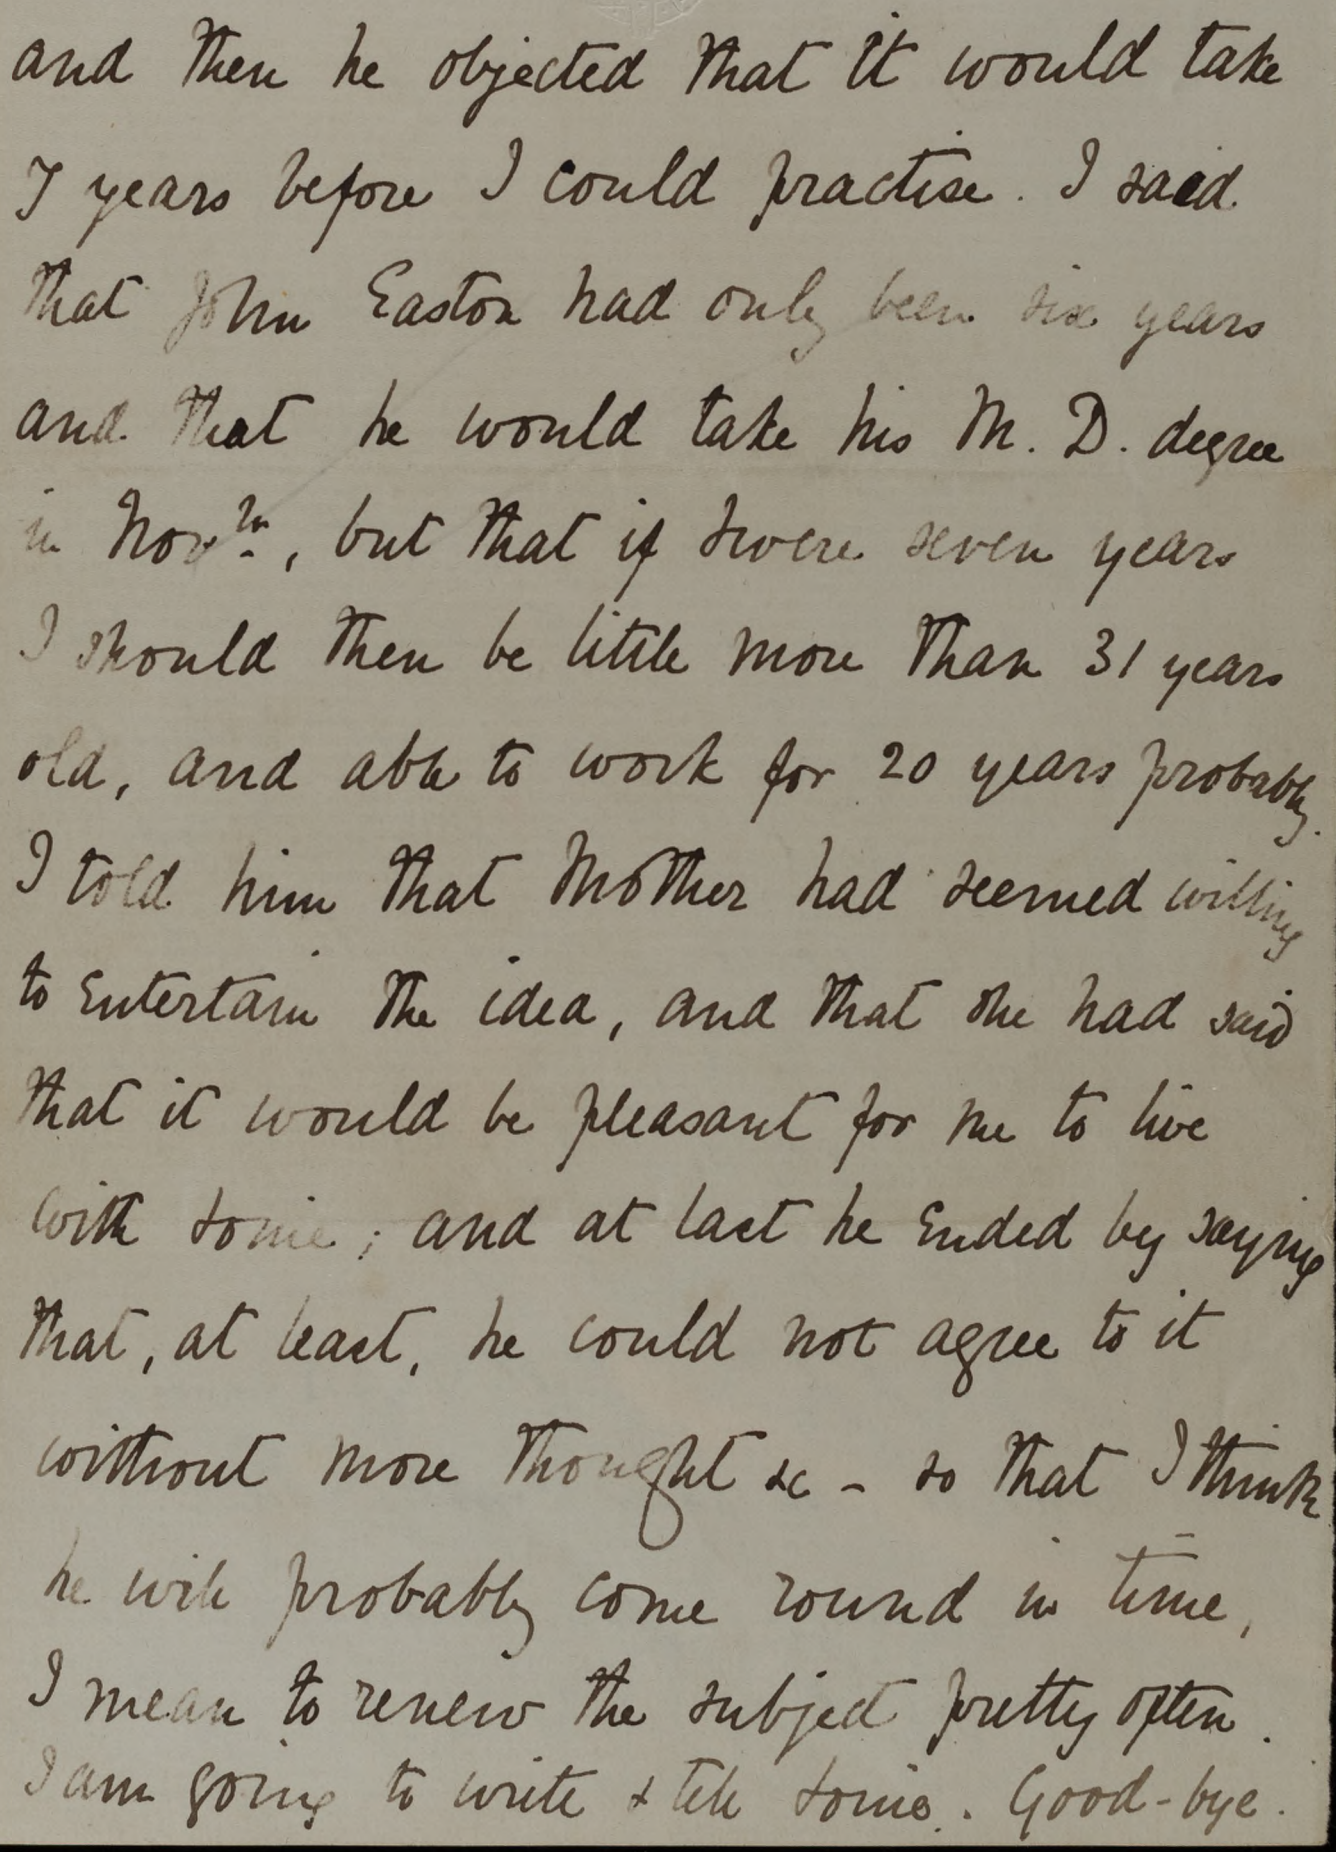 and then he objected that it would take
7 years before I could practise. I said
that John Easton had only been six years
and that he would take his M. D. degree
in Nov.m, but that if twere seven years
I should then be little more than 31 years
old, and able to work for 20 years probably.
I told him that Mother had seemed willing
to entertain the idea, and that she had said
that it would be pleasant for me to live
with ; and at last he ended by saying
that, at least, he could not agree to it
without more thought &c - so that I think
he will probably come round in time,
I mean to renew the subject pretty often.
I am going to write & tell . Good-bye.